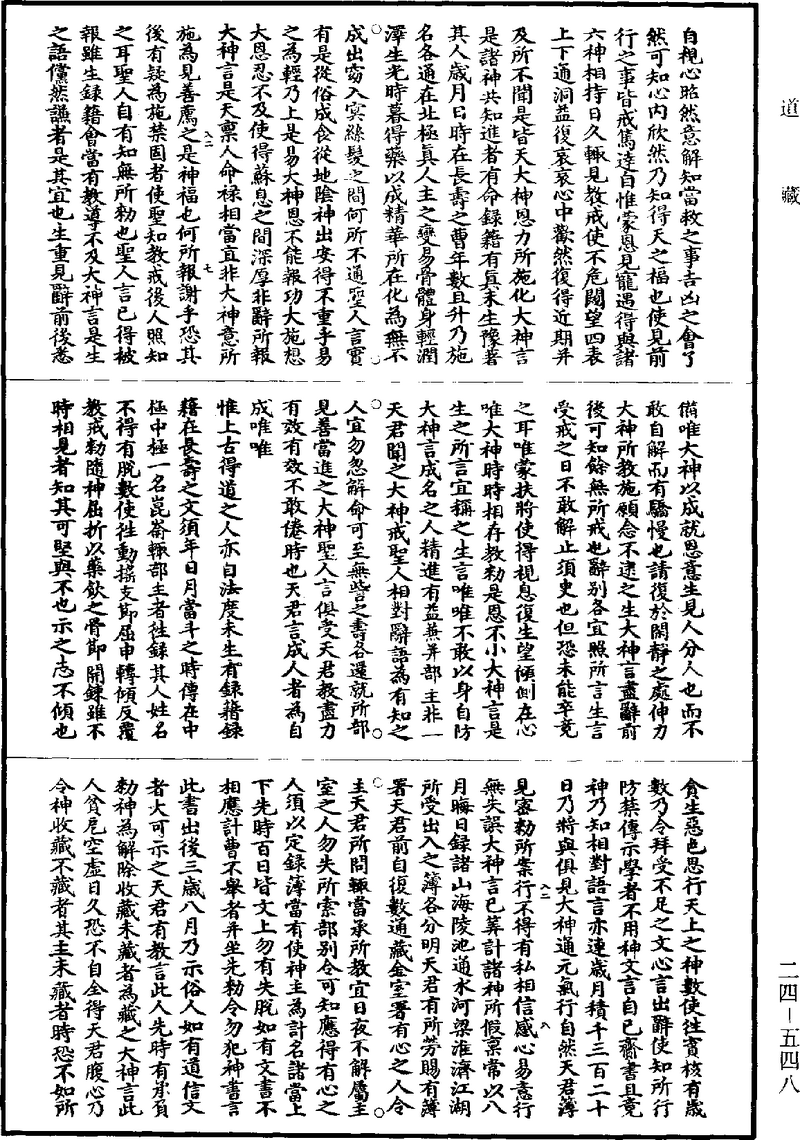 道藏
自視心昭然意解知當救之事吉凶之會了
然可知心内欣然乃知得天之福也使見前
行之事皆戒篤達自惟蒙恩見寵遇得與諸
六神相持日久輒見教戒使不危闕望四表
上下通洞益復哀哀心中歡然復得近期并
及所不聞是皆天大神恩力所施化大神言
是諸神共知進者有命録籍有真未生豫著
其人歲月日時在長壽之曹年數且升乃施
名各通在北極真人主之變易骨體身輕潤
澤生光時暮得藥以成精華所在化為無不
成出窈入冥絲髮之間何所不通聖人言實
有是從俗成食從地陰神出安得不重乎易
之為輕乃上是易大神恩不能報功大施想
大恩忍不及使得蘇息之間深厚非辭所報
大神言是天稟人命禄相當宜非大神意所
施為見善薦之是神福也何所報謝乎恐其
八二 七
後有疑為施禁固者使聖知教戒後人照知
之耳聖人自有知無所勑也聖人言已得被
報雖生録籍會當有教導不及大神言是生
之語儻然謙者是其宜也生重見辭前後悉
備唯大神以成就恩意生見人分人也而不
敢自解而有驕慢也請復於閑靜之處伸力
大神所教施願念不逮之生大神言盡辭前
後可知餘無所戒也辭别各宜照所言生言
受戒之日不敢解止須臾也但恐未能卒竟
之耳唯蒙扶將使得視息復生望傾倒在心
唯大神時時相存教勑是恩不小大神言是
生之所言宜稱之生言唯唯不敢以身自防
大神言成名之人精進有益兼并部主非一
天君聞之大神戒聖人相對辭語為有知之
人宜勿忽解命可至無訾之壽各還就所部
見善當進之大神聖人言俱受天君教盡力
有效有效不敢倦時也天君言成人者為自
成唯唯
惟上古得道之人亦自法度未生有録籍録
籍在長壽之文須年日月當斗之時傳在中
極中極一名崑崙輒部主者往録其人姓名
不得有脱數使往動摇支節屈申轉傾反覆
教戒勑隨神屈折以藥飲之骨節開鍊雖不
時相見者知其可堅與不也示之志不傾也
貪生惡色思行天上之神數使往實核有歲
數乃令拜受不足之文心言出辭使知所行
防禁傳示學者不用神文言自已齋書且竟
神乃知相對語言亦連歲月積千三百二十
日乃將與俱見大神通元氣行自然天君薄
見密勑所案行不得有私相信感心易意行
八二 八
無失誤大神言已筭計諸神所假稟常以八
月晦日録諸山海陵池通水河梁淮濟江湖
所受出入之簿各分明天君有所勞賜有簿
署天君前自復數通藏金室署有心之人令
主天君所問輒當承所教宜日夜不解屬主
室之人勿失所索部别令可知應得有心之
人須以定録薄當有使神主為計名諸當上
下先時百日皆文上勿有失脱如有文書不
相應計曹不舉者并坐先勑令勿犯神書言
此書出後三歲八月乃示俗人如有道信文
者大可示之天君有教言此人先時有承負
勑神為解除收藏未藏者為藏之大神言此
人貧尼空虚日久恐不自全得天君腹心乃
令神收藏不藏者其主未藏者時恐不如所
二四－五四八